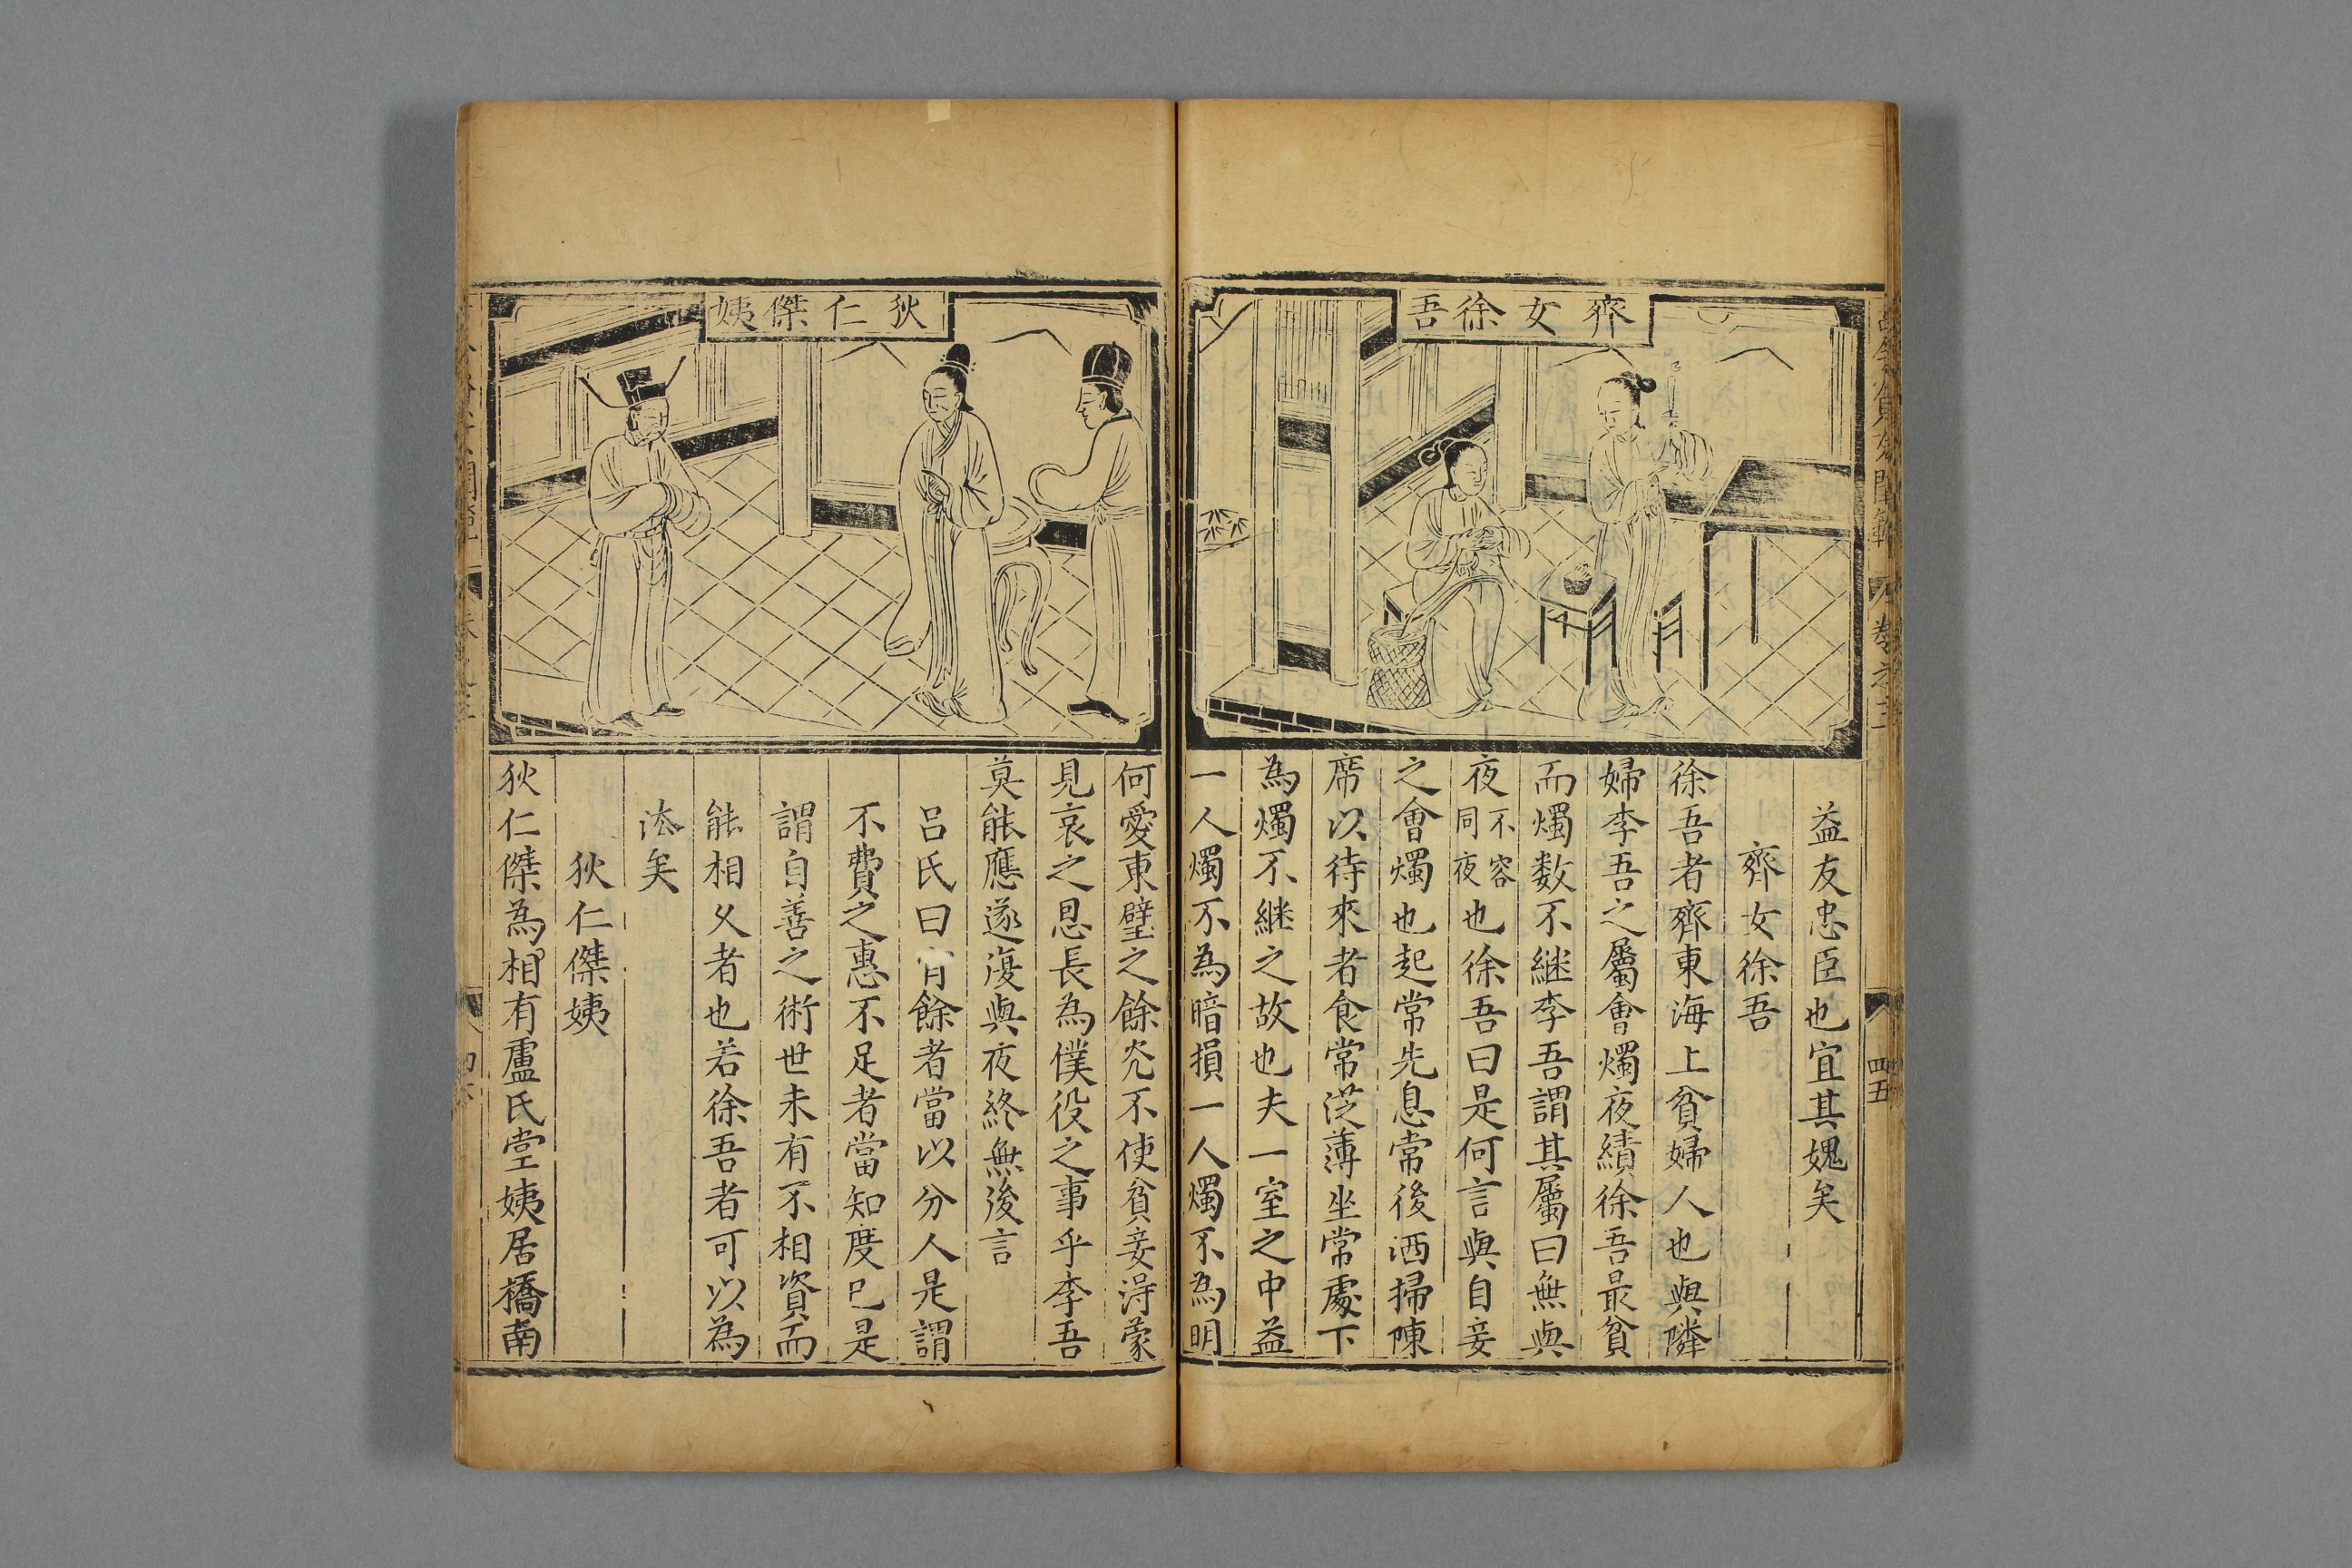 齊女徐吾
益友忠臣也宜其媿矣
齊女徐吾
徐吾者齊東海上貧婦人也與隣
婦李吾之屬會燭夜績徐吾最貧
而燭数不継李吾謂其屬曰無與
夜不容同夜也徐吾曰是何言與自妾
之會燭也起常先息常後洒掃陳
席以待來者食常從薄坐常處下
為燭不継之故也夫一室之中益
一人燭不為暗損一人燭不為明
四五
狄仁傑姨
何愛東壁之餘光不使貧妾淂蒙
見哀之恩長為僕役之事乎李吾
莫能應遂復與夜終無後言
呂氏曰有餘者當以分人是謂
不費之惠不足者當知度己是
謂自善之術世未有不相資而
能相久者也若徐吾者可以為
法矣
狄仁傑姨
狄仁傑為相有盧氏堂姨居橋南